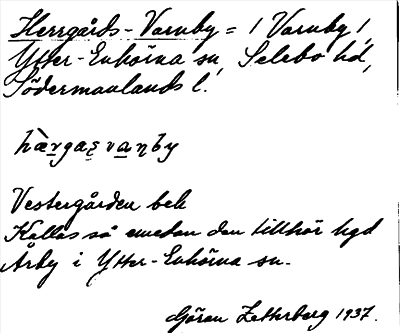 Herrgårds-Varnby = 1 Varnby 1,
Ytter-Enhörna sn, Selebo hd,
Södermanlands l.
hæ̀rgaṣvaṇby
Vestergården bek
Kallas så emedan den tillhör hgd
Årby i Ytter-Enhörna sn.
Göran Zetterberg 1937.